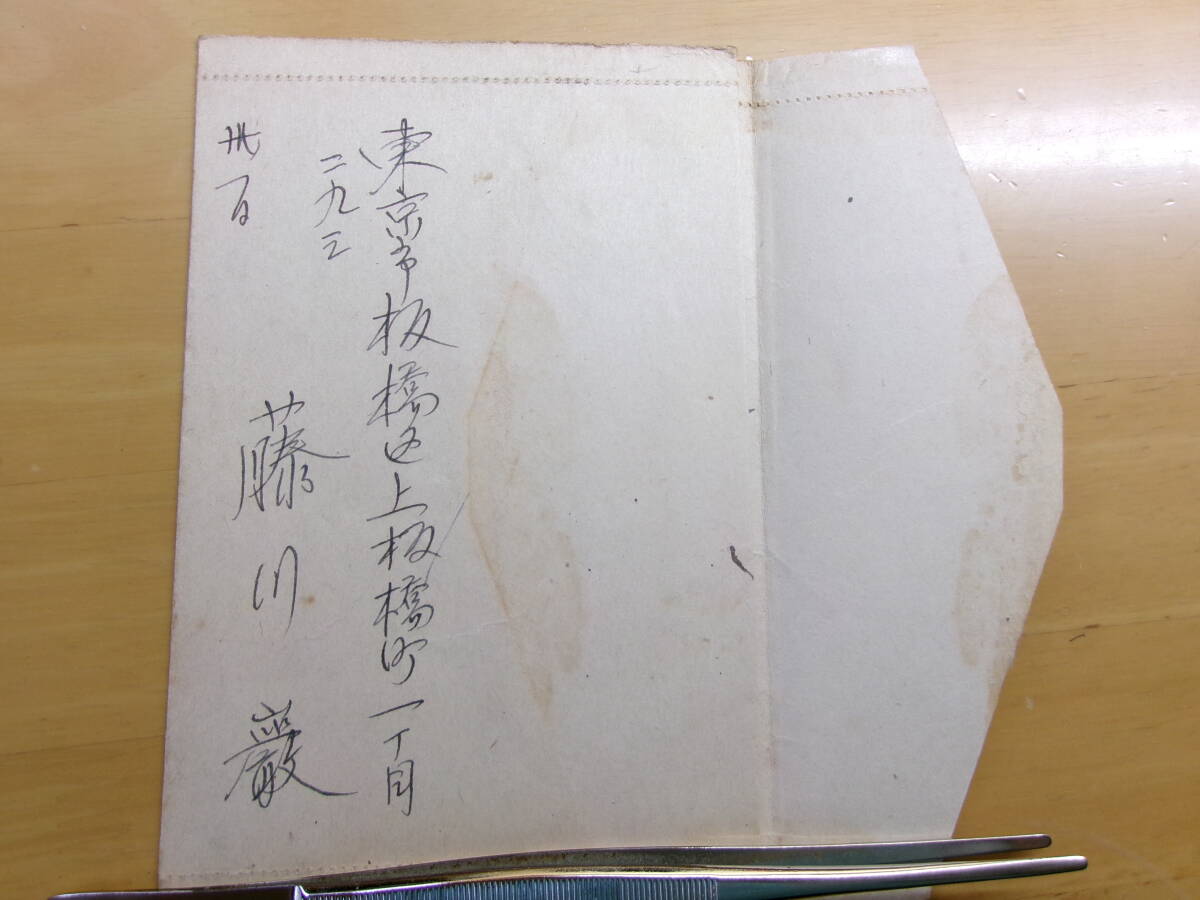 東京市板橋区上板橋町一丁目
二九三
藤川巌